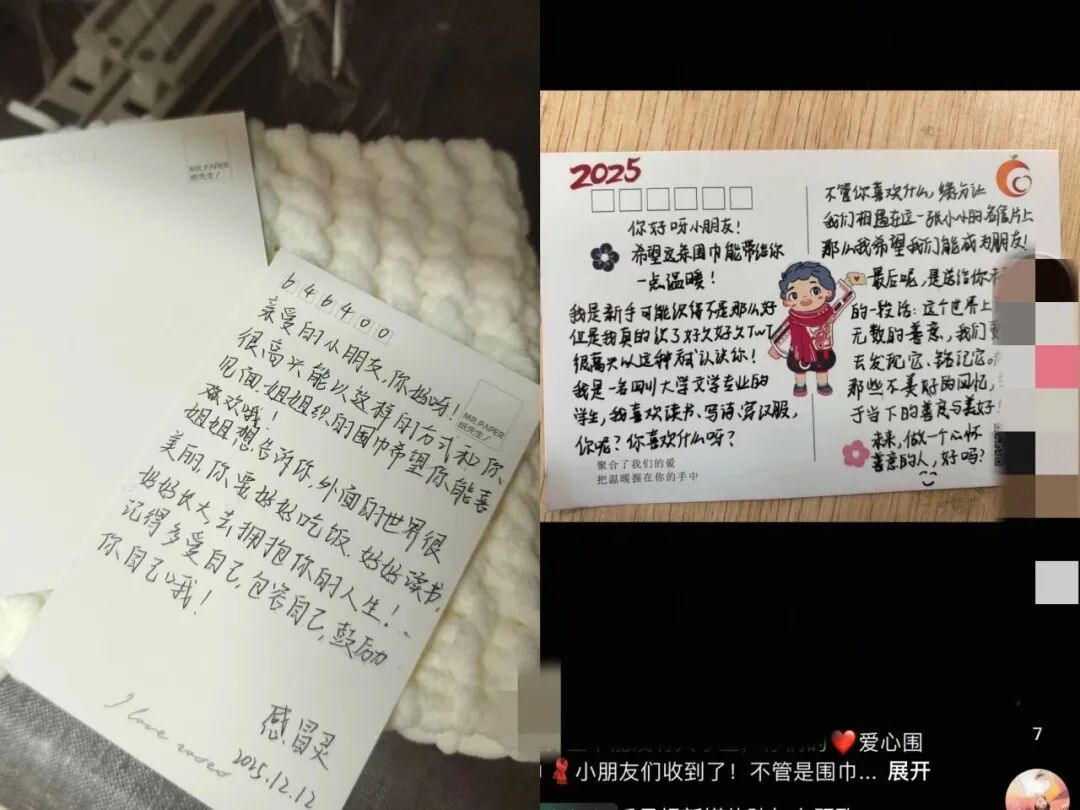 MR.PAPER
纸先生/
646400
MR.PAPER
纸先生/
亲爱的小朋友,你好呀!
很高兴能以这样的方式和你
见面.姐姐织的围巾希望你能喜
欢哦!
姐姐想告诉你,外面的世界很
美丽,你要好好吃饭.好好读书,
好好长大,去拥抱你的人生!
记得多爱自己,包容自己,鼓励
你自己哦!
感冒灵
2025.12.12
I love roses
2025
你好呀小朋友!
希望这条围巾能带给你
一点温暖!
我是新手可能织得不是那么好
但是我真的织了好久好久TwT
很高兴以这种方式认识你!
我是一名四川大学文学专业的
学生,我喜欢读书、写诗、穿汉服,
你呢?你喜欢什么呀?
聚合了我们的爱
把温暖握在你的手中
不管你喜欢什么,缘分让
我们相遇在这一张小小的名信片上
那么我希望我们能成为朋友!
最后呢,是送给你
的一段话:这个世界上
无数的善意,我们要
去发现它、铭记它。
那些不美好的回忆,
于当下的善良与美好!
未来,做一个心怀
善意的人,好吗?
7
爱心围
小朋友们收到了!不管是围巾... 展开